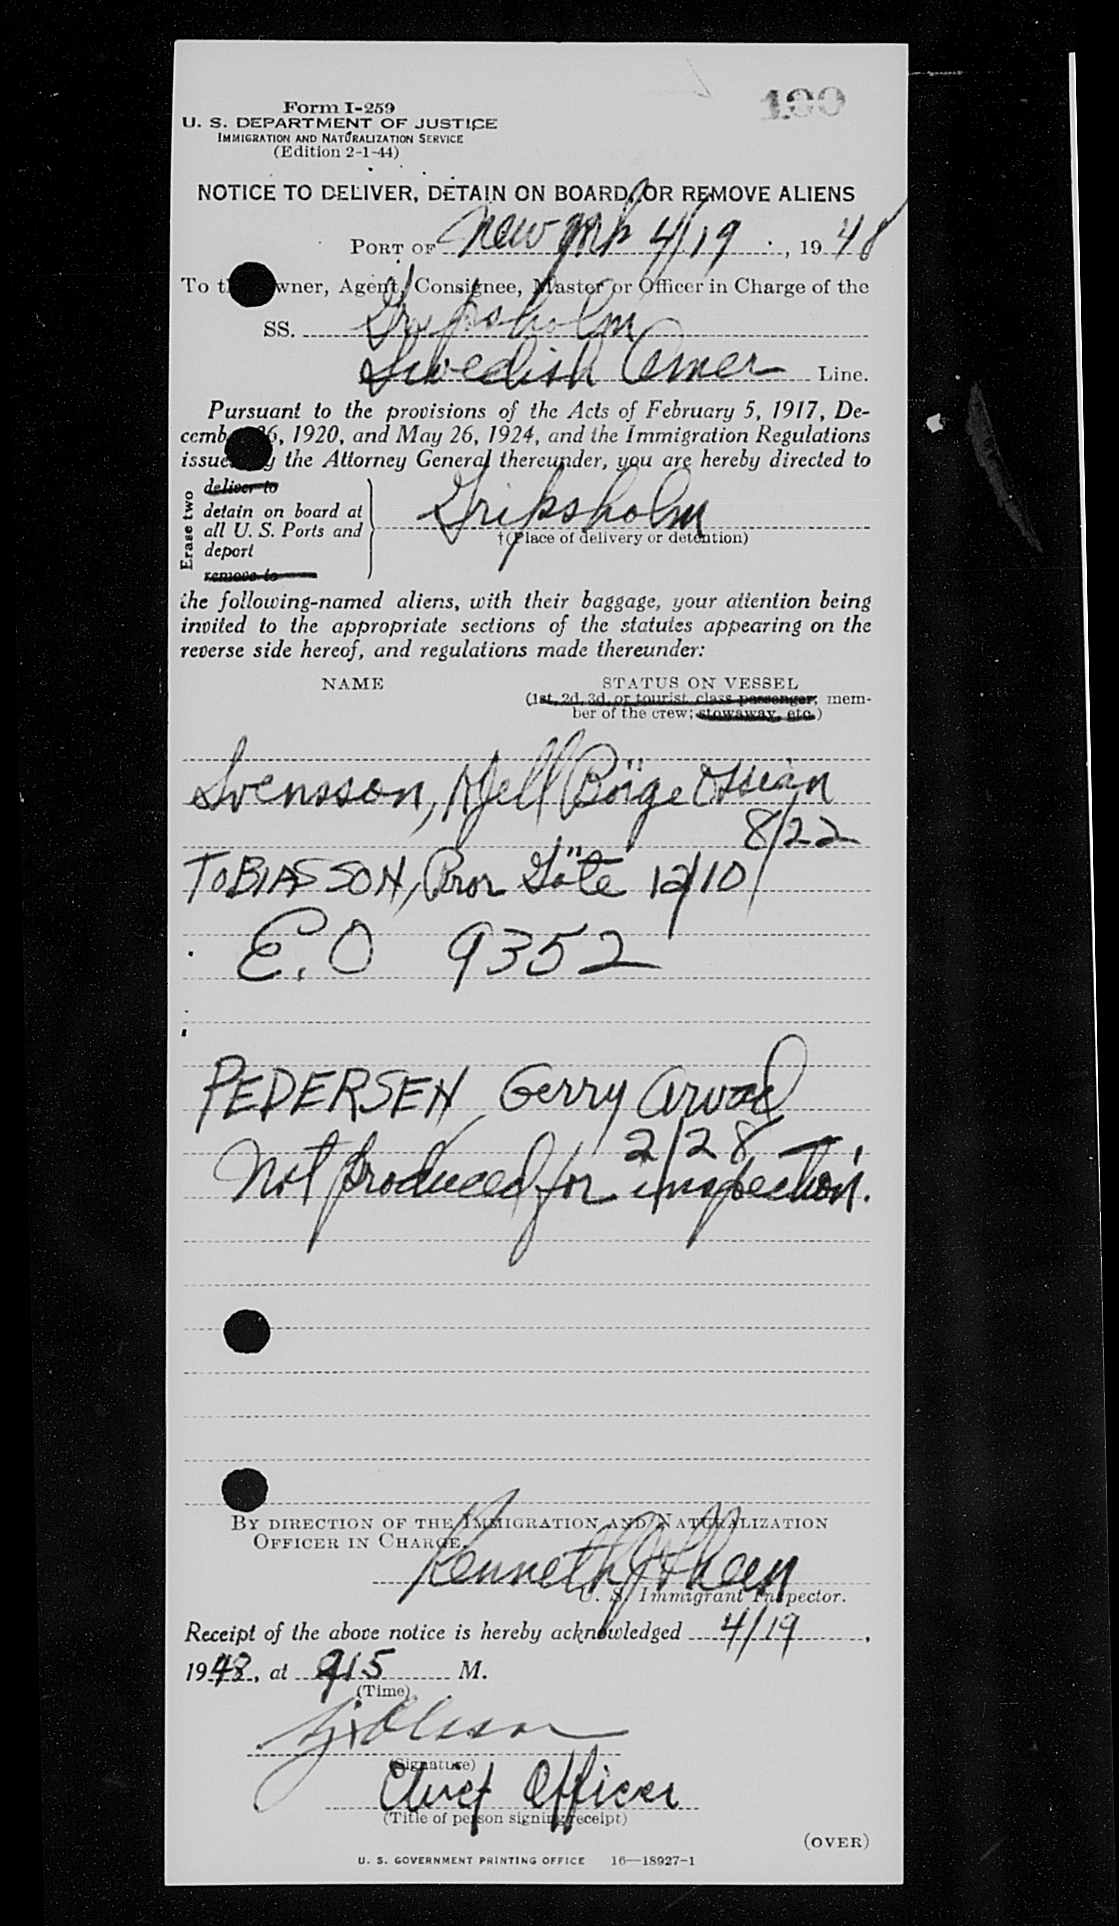 190
Form I-259
U. S. DEPARTMENT OF JUSTICE
IMMIGRATION AND NATURALIZATION SERVICE
(Edition 2-1-44)
NOTICE TO DELIVER, DETAIN ON BOARD, OR REMOVE ALIENS
PORT OF New York 4/19, 1948
To the Owner, Agent, Consignee, Master or Officer in Charge of the
SS. Gripsholm
Swedish Amer Line.
Pursuant to the provisions of the Acts of February 5, 1917, De-
cember 26, 1920, and May 26, 1924, and the Immigration Regulations
issued by the Attorney General thereunder, you are hereby directed to
Erase two
deliver to
detain on board at
all U. S. Ports and
deport
remove to
Gripsholm
†(Place of delivery or detention)
the following-named aliens, with their baggage, your attention being
invited to the appropriate sections of the statutes appearing on the
reverse side hereof, and regulations made thereunder:
NAME STATUS ON VESSEL
(1st, 2d, 3d, or tourist class passenger; mem-
ber of the crew; stowaway, etc.)
Svensson, Kjell Börge Ossian
8/22
TOBIASSON, Göte 12/10
E.O 9352
PEDERSEN, Gerry Arvad
2/28
Not produced for inspection.
BY DIRECTION OF THE IMMIGRATION AND NATURALIZATION
OFFICER IN CHARGE.
Kenneth
U. S. Immigrant Inspector.
Receipt of the above notice is hereby acknowledged 4/19,
1948, at 915 M.
(Time)
Olsson
(Signature)
Chief Officer
(Title of person signing receipt)
(OVER)
U. S. GOVERNMENT PRINTING OFFICE 16—18927-1